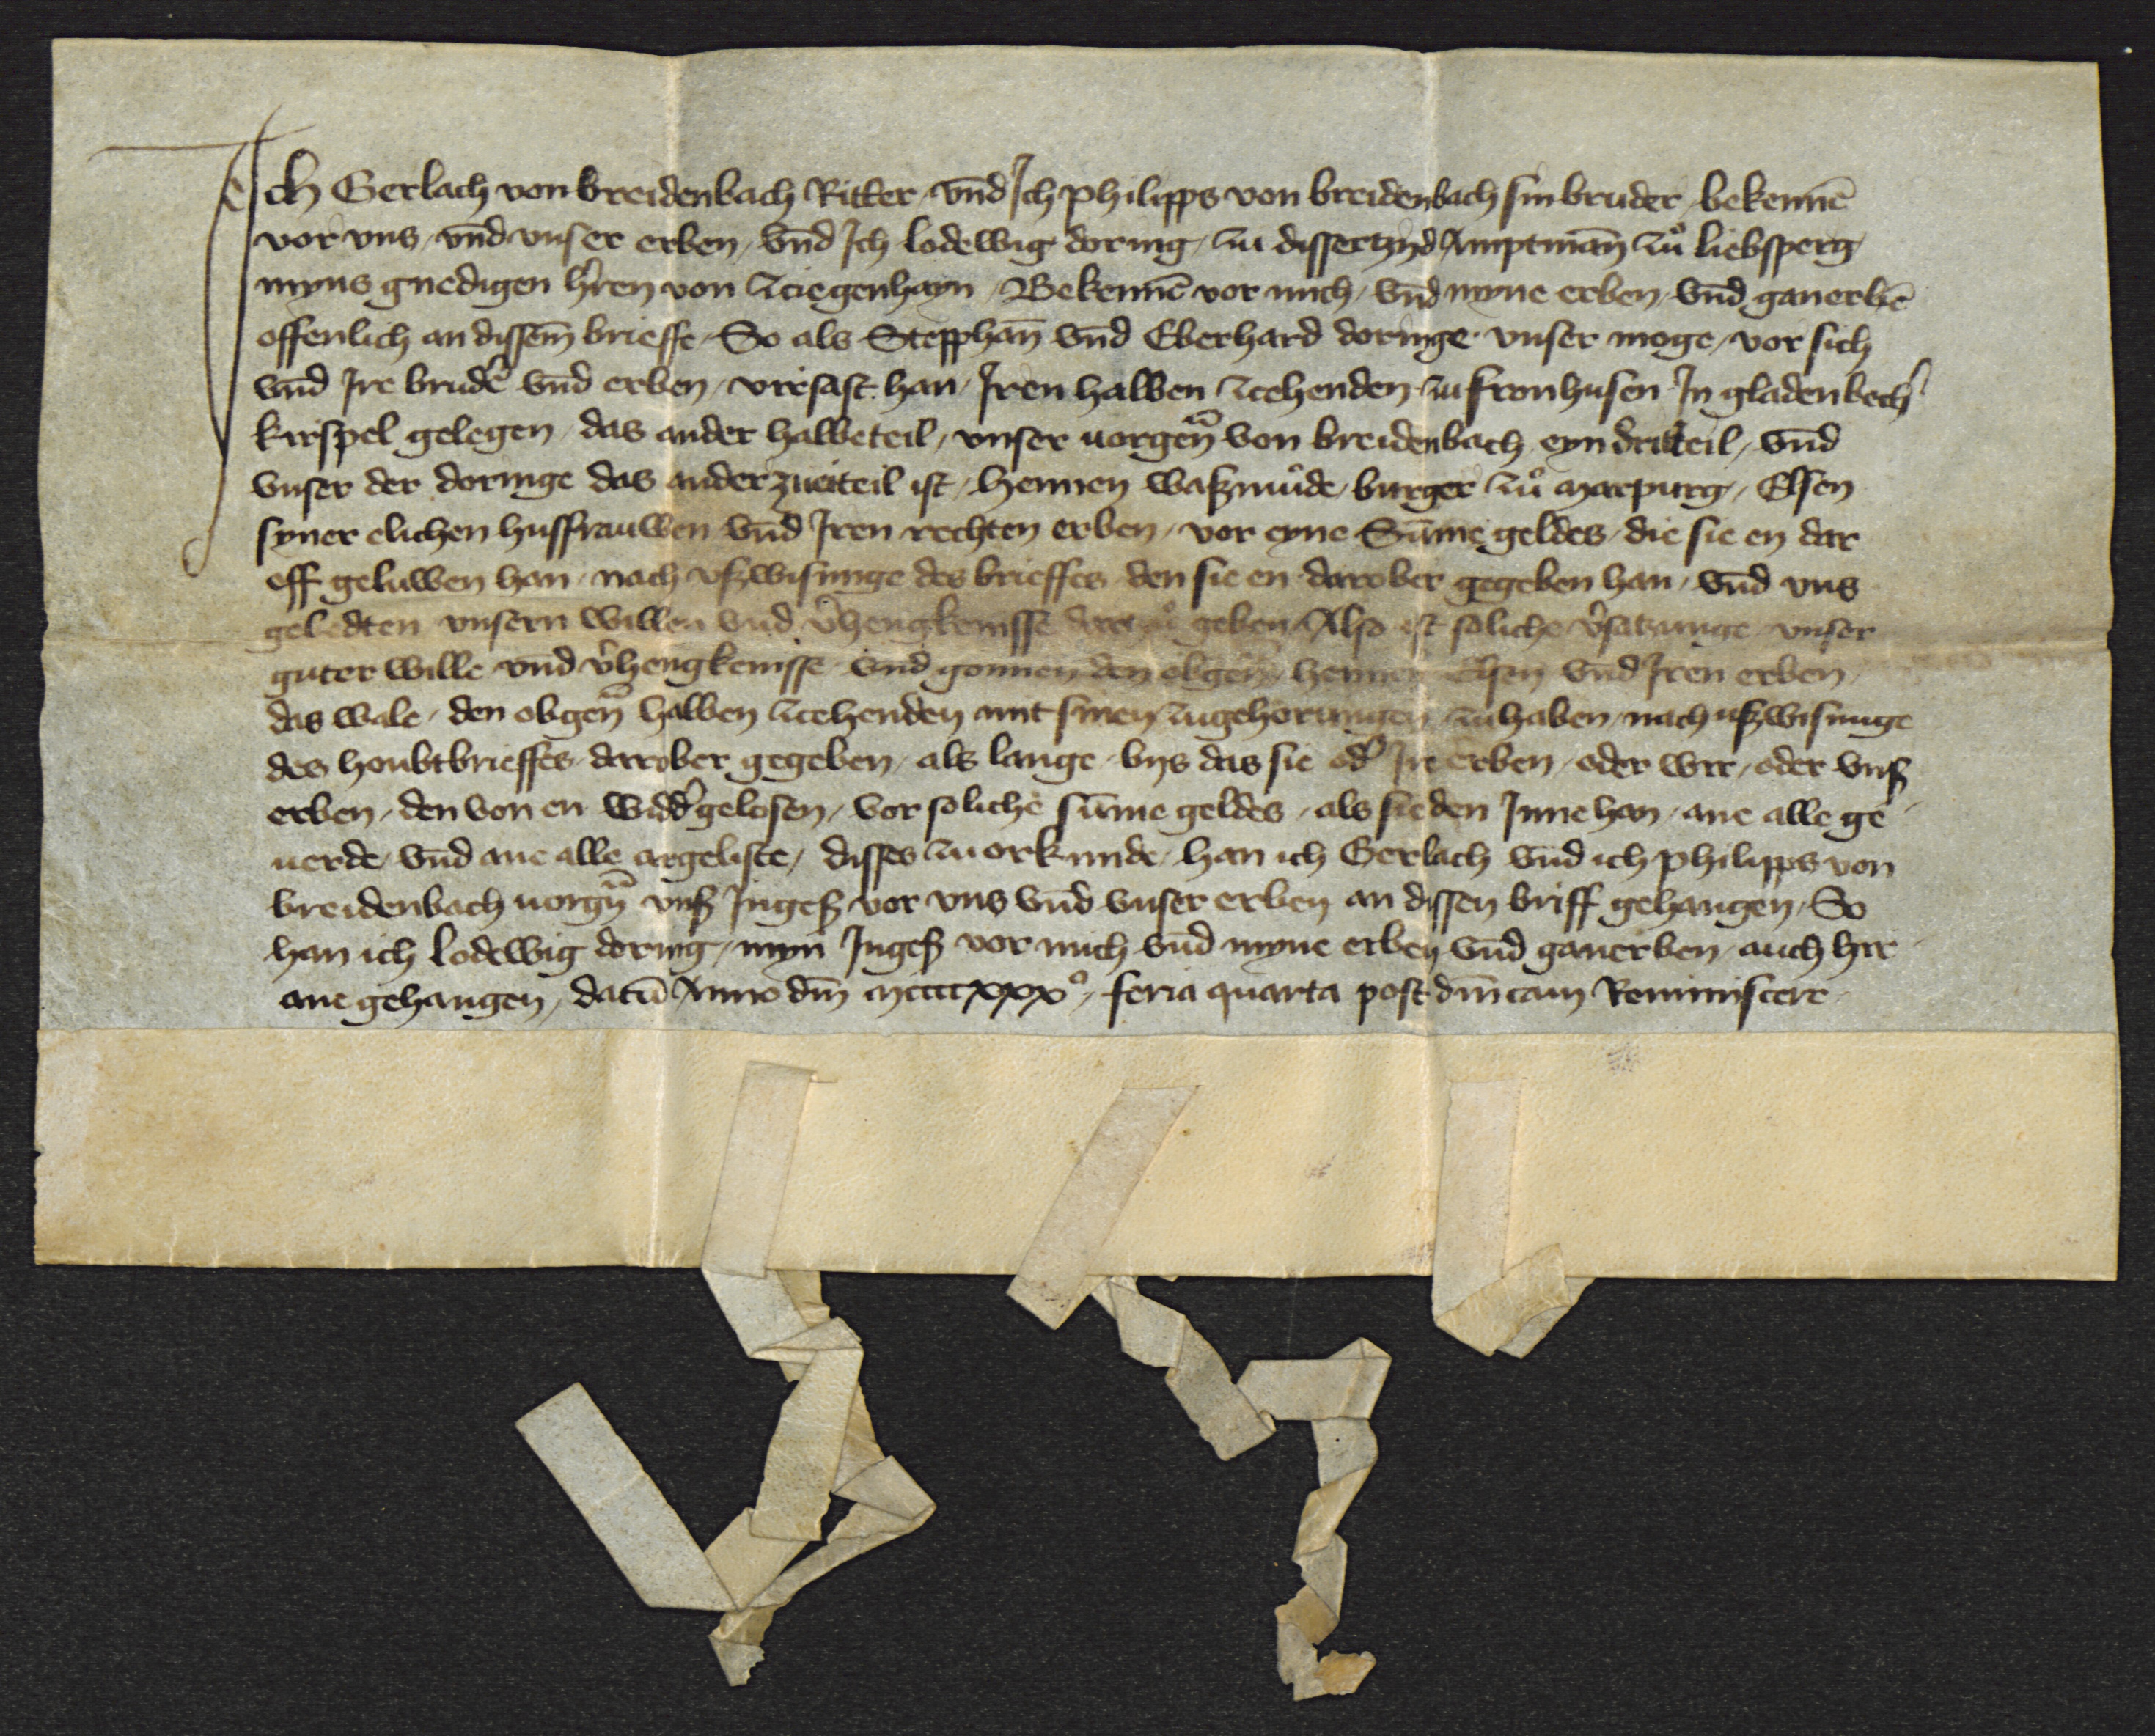 Ich Gerlach von breidenbach Ritter vnd Ich philipps von breidenbach sin bruder bekenne̅
vor vns vnd vnser erben vnd Ich lodewig doring zu disser zijd Amptma̅n zuͦ liebsperg
myns gnedigen hr̛en von Zciegenhayn Bekenne̅ vor mich vnd myne erben vnd ganerbe̅
offenlich an disse̅m brieffe So als Stepphan̅ vnd Eberhard doringe vnser moge vor sich
vnd Jre brude̛ vnd erben virsast han Jren halben zcehenden zu fronhusen In gladenbech̛
kirspel gelegen das ander halbeteil vnser uorgen̅ von breidenbach eyn dritteil vnd
vnser der doringe das ander zueiteil ist Hennen waßmuͦde burger zuͦ marpurg Elsen
syner elichen husfrauwen vnd Iren rechten erben vor eyne Su̅me geldes die sie en dar
uff geluwen han nach vßwisunge des brieffes den sie en darober gegeben han vnd vns
gebedten vnsern willen vnd v̛hengkenisse dar zuͦ geben Also ist soliche v̛satzunge vnser
guter wille vnd v̛hengkenisse vnd gonnen den obgen̅ hennen elsen vnd Iren erben
das wale den obgen̅ halben zcehenden mit sinen zugehorungen zu haben nach ußwisunge
des houbtbrieffes darober gegeben als lange byß das sie od̛ Jre erben oder wir oder vnß
erben den von en widd̛ gelosen vor soliche su̅me geldes als sie den Inne han ane alle ge
uerde vnd ane alle argeliste disses zu orkunde han ich Gerlach vnd ich philipps von
breidenbach uorgn̅ vnß Ingeß vor vns vnd vnser erben an dissen briff gehangen So
han ich lodewig doring myn Ingeß vor mich vnd myne erben vnd ganerben auch hir
ane gehangen datu̅ Anno dm̅ mccccxxxº feria quarta post dm̅cam Reminiscere